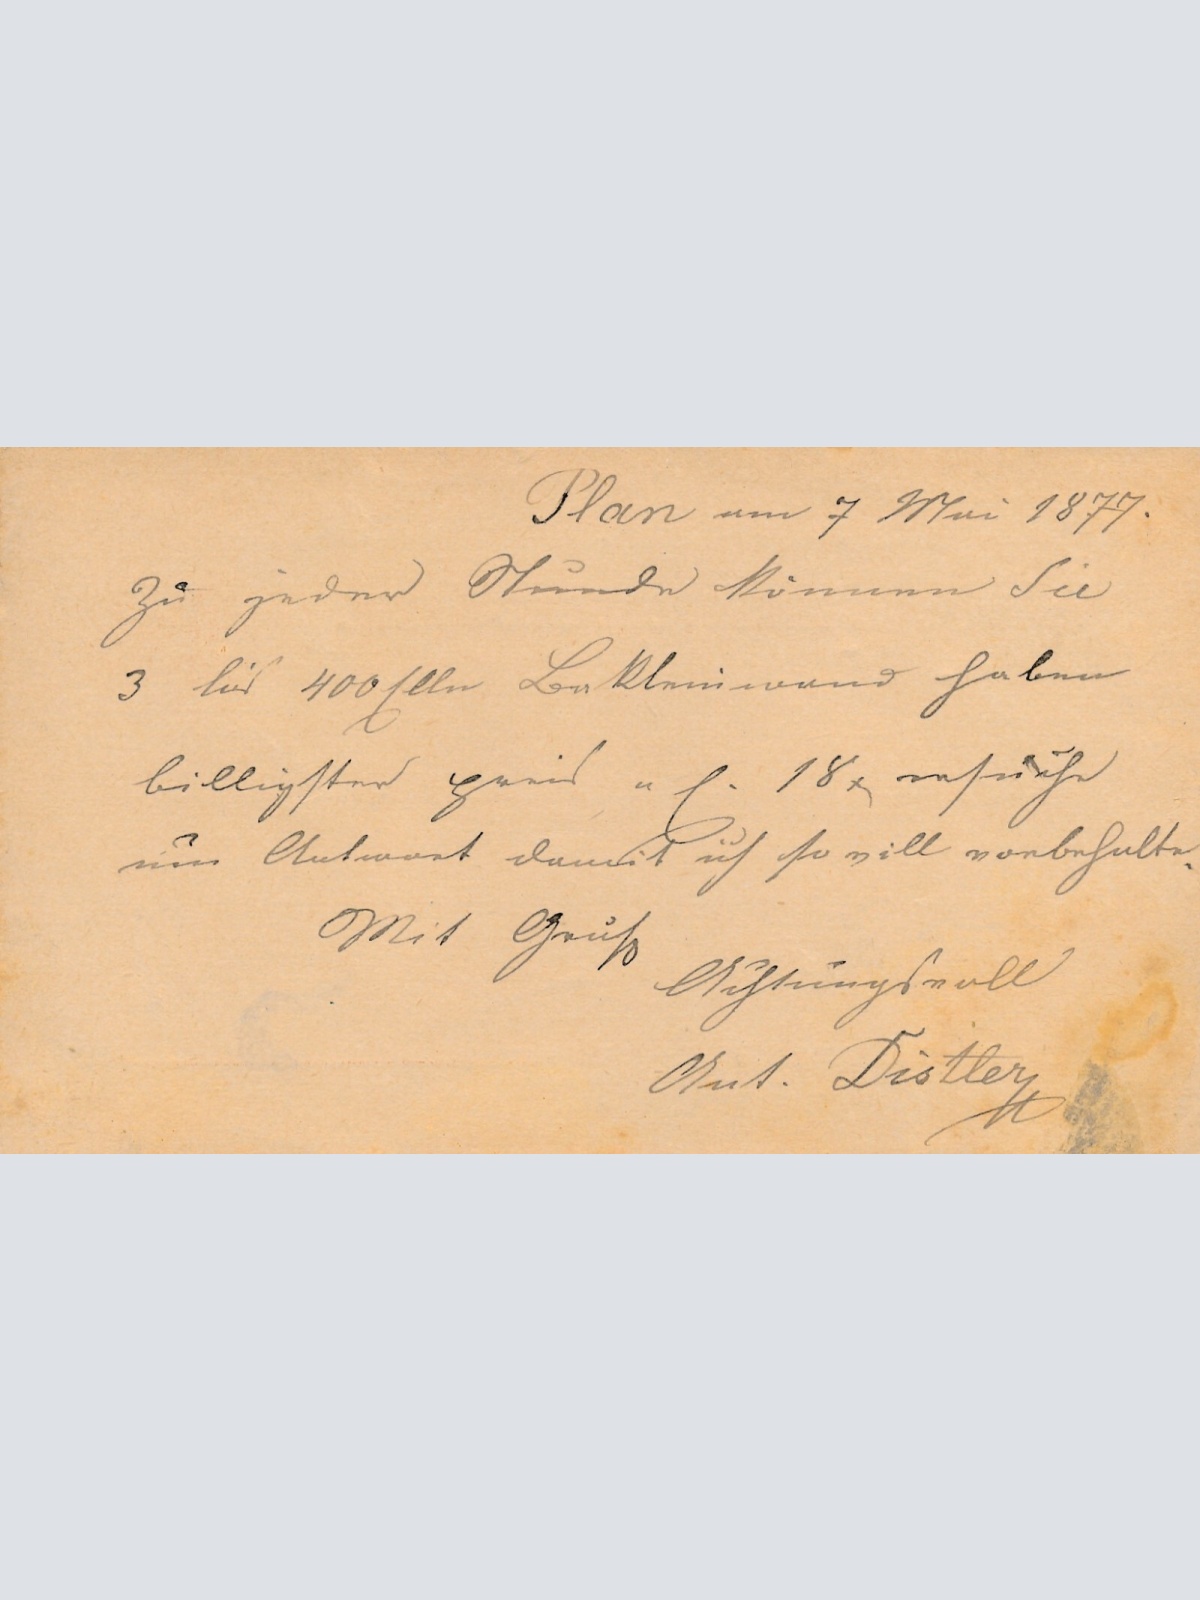 Plan am 7 Mai 1877.
Zu jeder Stunde können Sie
3 bis 400 Elln Bakleinwand haben
billigster preis a E. 18 x ersuche
um Antwort damit ich so vill vorbehalte.
Mit Gruß
Achtungsvoll
Ant. Distler